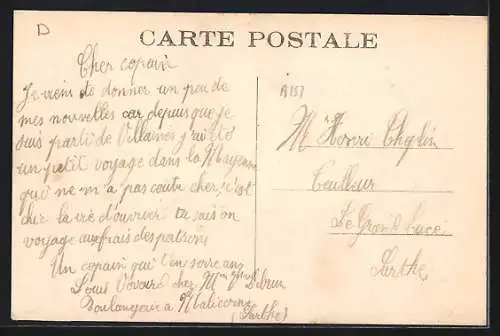 D
CARTE POSTALE
Cher copain
Je vient de donner un peu de
mes nouvelles car depuis que je
suis parti de Villaines j'ai été
un petit voyage dans la Mayenne
qui ne m'a pas couté cher, c'est
chic la vie d'ouvrier tu sais on
voyage aux frais des patrons
Un copain qui t'en serre cinq
Louis chez Mr Lebrun
Boulangerie a Malicorne
(Sarthe)
A157
Mr Henri Choplin
Tailleur
Le Grand Lucé
Sarthe